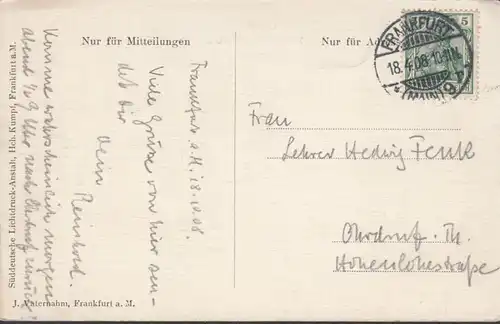 Nur für Mitteilungen
Nur für Ad
FRANKFURT
18.4.08
* (MAIN) 9
5
Frankfurt a. M. 18.IV.08.
Viele Grüsse von hier sen-
det Dir
Dein
Reinhold.
Komme wahrscheinlich morgen
abend ½ 9 Uhr nach Ohrdruf zurück!
Frau
Lehrer Hedwig Fenk
Ohrdruf. Th.
Hohenlohestraße
Süddeutsche Lichtdruck-Anstalt, Hch. Kumpf, Frankfurt a. M.
J. Vaternahm, Frankfurt a. M.